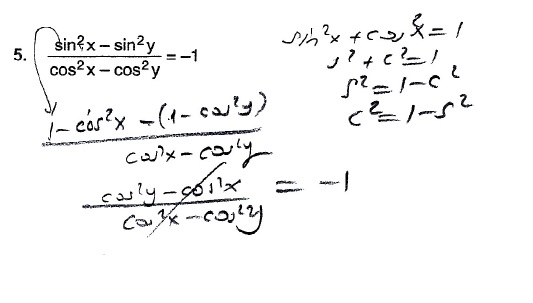 5. sin²x – sin²y / cos²x – cos²y = –1
sin²x + cos²x = 1
s² + c² = 1
s² = 1 – c²
c² = 1 – s²
1 – cos²x – (1 – cos²y) / cos²x – cos²y
cos²y – cos²x / cos²x – cos²y = –1